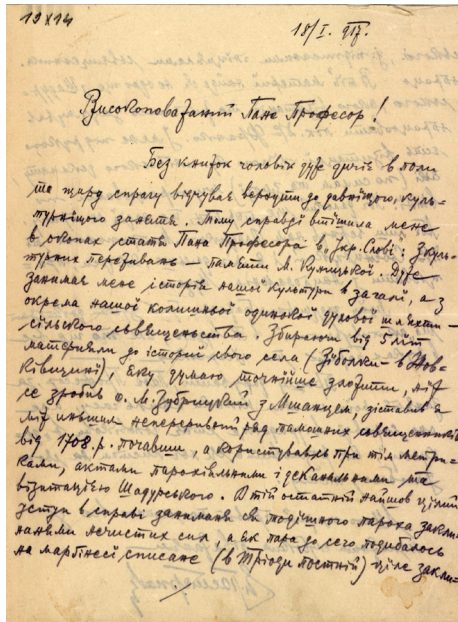 19 X 14
18/I. 917.
Високоповажаний Пане Професор!
Без книжок чоловік дуже дичіє в поли
та жадну спрагу відчуває вернути до давнійшого, куль-
турнішого занятя. Тому справді втішила мене
в окопах статя Пана Професора в „Укр. Слові: З куль-
турних переживань — памяти М. Куницької. Дуже
занимая мене історія нашої культури в загалі, а з
окрема нашої колишньої одинокої духової шляхти —
сільського сьвященьства. Збираючи від 5 літ
материяли до історії свого села (Зіболки — в Жов-
ківщині), яку думаю точнійше зложити, ніж
се зробив о. М. Зубрицкий з Мшанцем, зіставив я
між иньшим неперериваний ряд тамошних сьвященників
від 1708 р. почавши, а користувавсь при тім метри-
ками, актами парохіяльними і деканальними та
візитацією Шадурського. В тій остатній найшов цілий
уступ в справі заниманя ся тодішного пароха закли-
нанями нечистих сил, а як пара до сего подибалось
на марґінесі списане (в Тріоди постній) ціле закли-